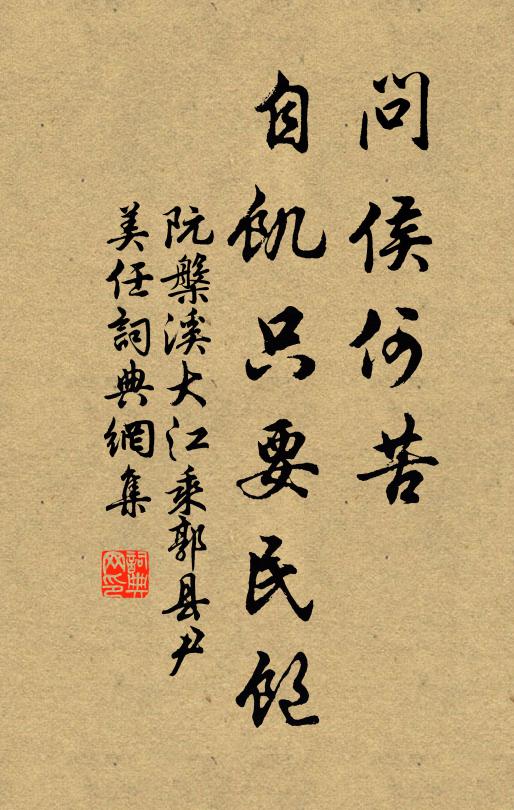 問侯何苦
自飢只要民飽
阮槃溪大江乘郭县尹
美任詞典網集
詞典網印